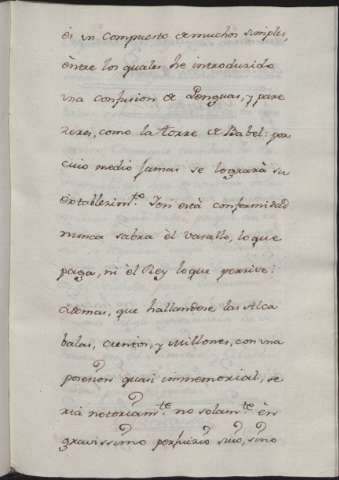 es vn Compuesto de muchos simples,
èntre los quales he introducido
vna confusion de Lenguas, y pare
zeres, como la torre de Babel: por
cuio medio Jamas se lograrà su
Extablezim.to Y en està conformidad
nunca sabra èl Vasallo, lo que
paga, ni èl Rey lo que perzive:
ademas, que hallandose las Alca
balas, Cientos, y Millones, con vna
posesion quasi inmemorial, se
rià notoriam.te no solam.te èn
gravissimo perjuizio suio, sino